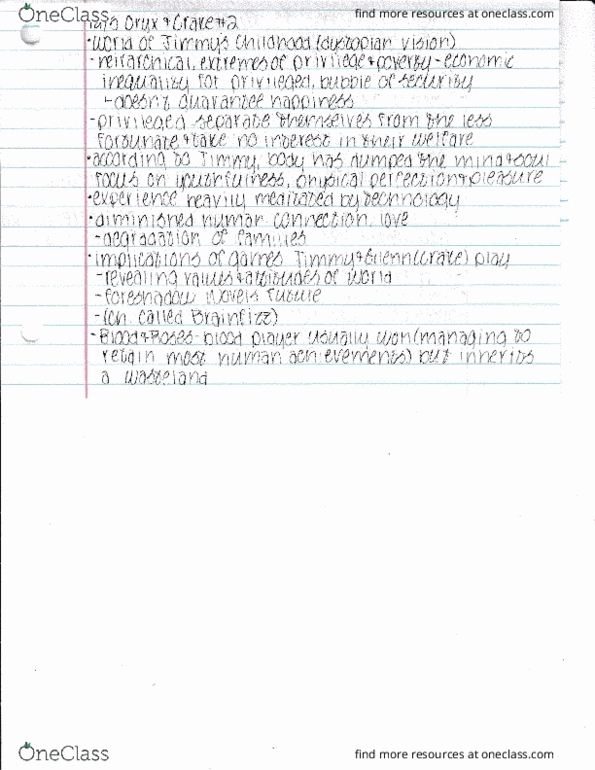 OneClass
find more resources at oneclass.com
Oryx + Crake #2
• World of Jimmy's Childhood (dystopian vision)
- heirarchical, extremes of privilege + poverty - economic
inequality for privileged, bubble of security
- doesn't guarantee happiness
- privileged separate themselves from the less
fortunate + take no interest in their welfare
• according to Jimmy, body has dumped the mind + soul
focus on youthfulness, physical perfection + pleasure
• experience heavily mediated by technology
• diminished human connection, love
- degradation of families
• implications of games Jimmy + Glenn (Crake) play
- revealing values + attitudes of world
- foreshadow novels future
- (ch. called Brainfrizz)
- Blood + Roses - blood player usually won (managing to
retain most human achievements) but inherits
a wasteland
OneClass
find more resources at oneclass.com